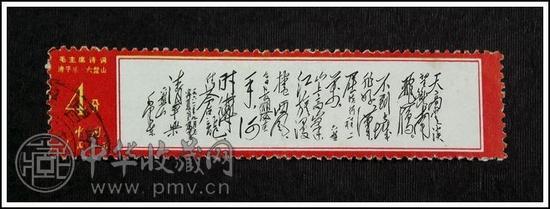 毛主席诗词
清平乐·六盘山
4分
天高云淡
望断南
飞雁
不到长城
非好汉
屈指行程二
万 六盘
山上高峰
红旗漫
卷西风
今日长缨
在手 何
时缚住
苍龙
清平乐
中华收藏网
www.pmv.cn